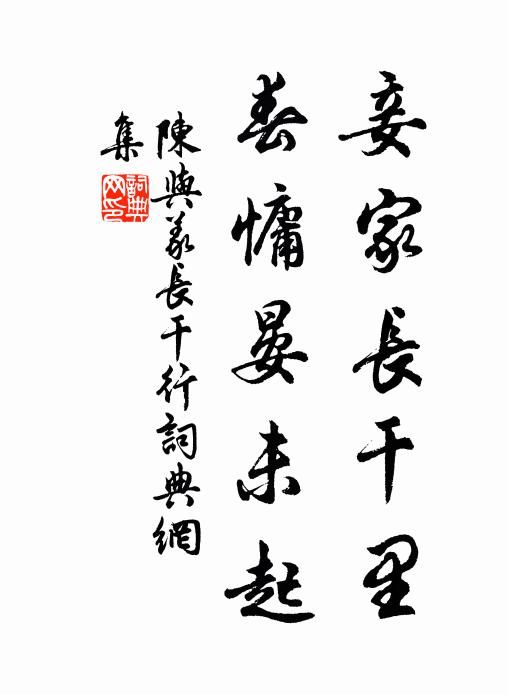 妾家長干里
春慵晏未起
陳與義長干行詞典網
集
詞典
网印